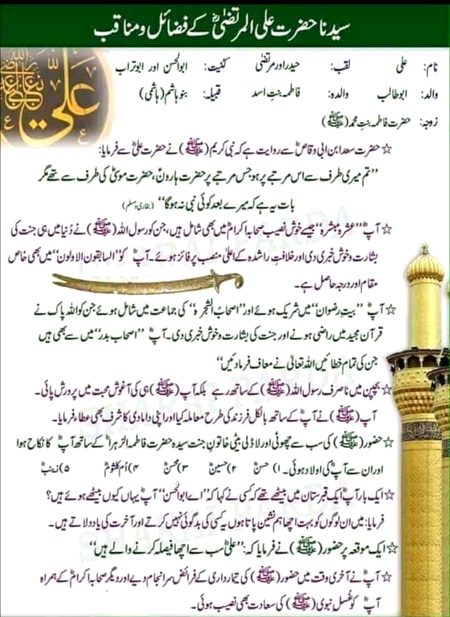 سیدنا حضرت علی المرتضیٰؓ کے فضائل و مناقب
نام: علی لقب: حیدر اور مرتضیٰ کنیت: ابوالحسن اور ابوتراب
والد: ابوطالب والدہ: فاطمہ بنتِ اسد قبیلہ: بنو ہاشم (ہاشمی)
زوجہ: حضرت فاطمہ بنتِ محمد (ﷺ)
☆ حضرت سعد ابن ابی وقاصؓ سے روایت ہے کہ نبی کریم (ﷺ) نے حضرت علیؓ سے فرمایا:
”تم میری طرف سے اس مرتبے پر ہو جس مرتبے پر حضرت ہارونؑ، حضرت موسیٰؑ کی طرف سے تھے مگر
بات یہ ہے کہ میرے بعد کوئی نبی نہ ہوگا“ (بخاری و مسلم)
☆ آپؓ ”عشرہ مبشرہ“ جیسے خوش نصیب صحابہ کرامؓ میں بھی شامل ہیں، جن کو رسول اللہ (ﷺ) نے دُنیا میں ہی جنت کی
بشارت و خوش خبری دی اور خلافتِ راشدہ کے اعلیٰ منصب پر فائز ہوئے۔ آپؓ کو ”السابقون الاولون“ میں بھی خاص
مقام اور درجہ حاصل ہے۔
☆ آپؓ ”بیتِ رضوان“ میں شریک ہوئے اور ”اصحاب الشجرۃ“ کی جماعت میں شامل ہوئے جن کو اللہ پاک نے
قرآن مجید میں راضی ہونے اور جنت کی بشارت و خوش خبری دی۔ آپؓ ”اصحاب بدر“ میں سے بھی ہیں
جن کی تمام خطائیں اللہ تعالیٰ نے معاف فرما دیں“
☆ بچپن میں نا صرف رسول اللہ (ﷺ) کے ساتھ رہے بلکہ آپ (ﷺ) ہی کی آغوشِ محبت میں پرورش پائی۔
آپ (ﷺ) نے آپؓ کے ساتھ بالکل فرزند کی طرح معاملہ کیا اور اپنی دامادی کا شرف بھی عطا فرمایا۔
☆ حضور (ﷺ) کی سب سے چھوٹی اور لاڈلی بیٹی خاتونِ جنت سیدہ حضرت فاطمۃ الزہراؓ کے ساتھ آپؓ کا نکاح ہوا
اور ان سے آپؓ کی اولاد ہوئی۔ ۱) حسنؓ ۲) حسینؓ ۳) محسنؓ ۴) اُم کلثومؓ ۵) زینبؓ
☆ ایک بار آپؓ ایک قبرستان میں بیٹھے تھے کہ کسی نے کہا: ”اے ابوالحسنؓ! آپؓ یہاں کیوں بیٹھے ہوئے ہیں؟
فرمایا: میں ان لوگوں کو بہت اچھا ہم نشین پاتا ہوں یہ کسی کی بدگوئی نہیں کرتے اور آخرت کی یاد دلاتے ہیں۔
☆ ایک موقعہ پر حضور (ﷺ) نے فرمایا کہ: ”علیؓ سب سے اچھا فیصلہ کرنے والے ہیں“
☆ آپؓ نے آخری وقت میں حضور (ﷺ) کی تیمارداری کے فرائض سرانجام دیے اور دیگر صحابہ اکرامؓ کے ہمراہ
آپؓ کو غسلِ نبوی (ﷺ) کی سعادت بھی نصیب ہوئی۔